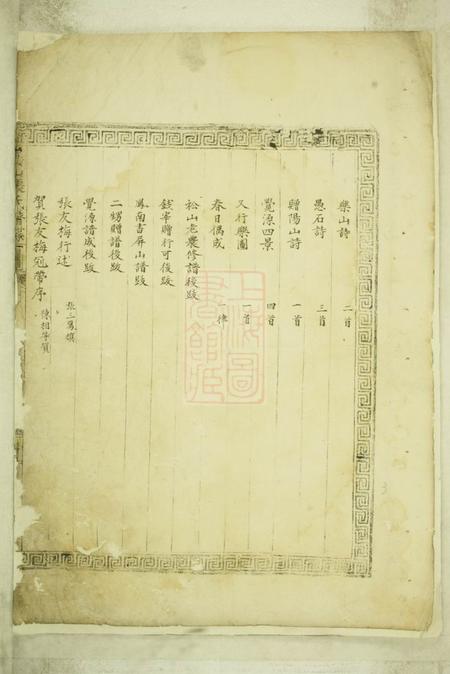 樂山詩 二首
愚石詩 三首
贈陽山詩 一首
覺源四景 四首
又行樂圖 一首
春日偶成 一律
松山老農修譜後跋
錢峯贈行可後跋
鳳南書屏山譜跋
二甥贈譜後跋
覺源譜成後跋
張友梅行述 張三鳳撰
賀張友梅冠帶序 陳相等賀
上海圖書館藏